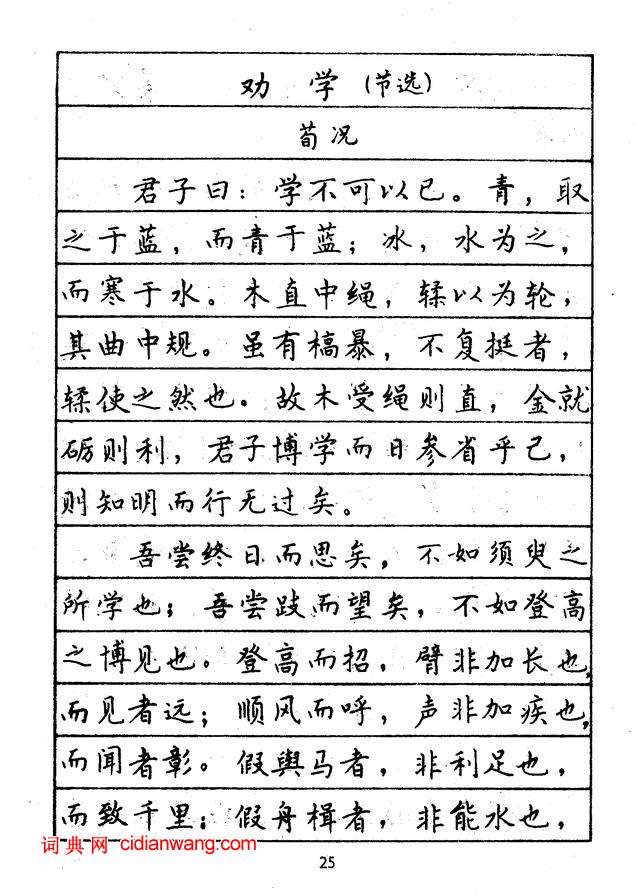 劝 学（节选）
荀况
君子曰：学不可以已。青，取
之于蓝，而青于蓝；冰，水为之，
而寒于水。木直中绳，𫐓以为轮，
其曲中规。虽有槁暴，不复挺者，
𫐓使之然也。故木受绳则直，金就
砺则利，君子博学而日参省乎己，
则知明而行无过矣。
吾尝终日而思矣，不如须臾之
所学也；吾尝跂而望矣，不如登高
之博见也。登高而招，臂非加长也，
而见者远；顺风而呼，声非加疾也，
而闻者彰。假舆马者，非利足也，
而致千里；假舟楫者，非能水也，
词典网 cidianwang.com
25